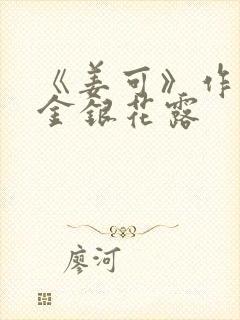 《姜可》作
金银花露
廖河